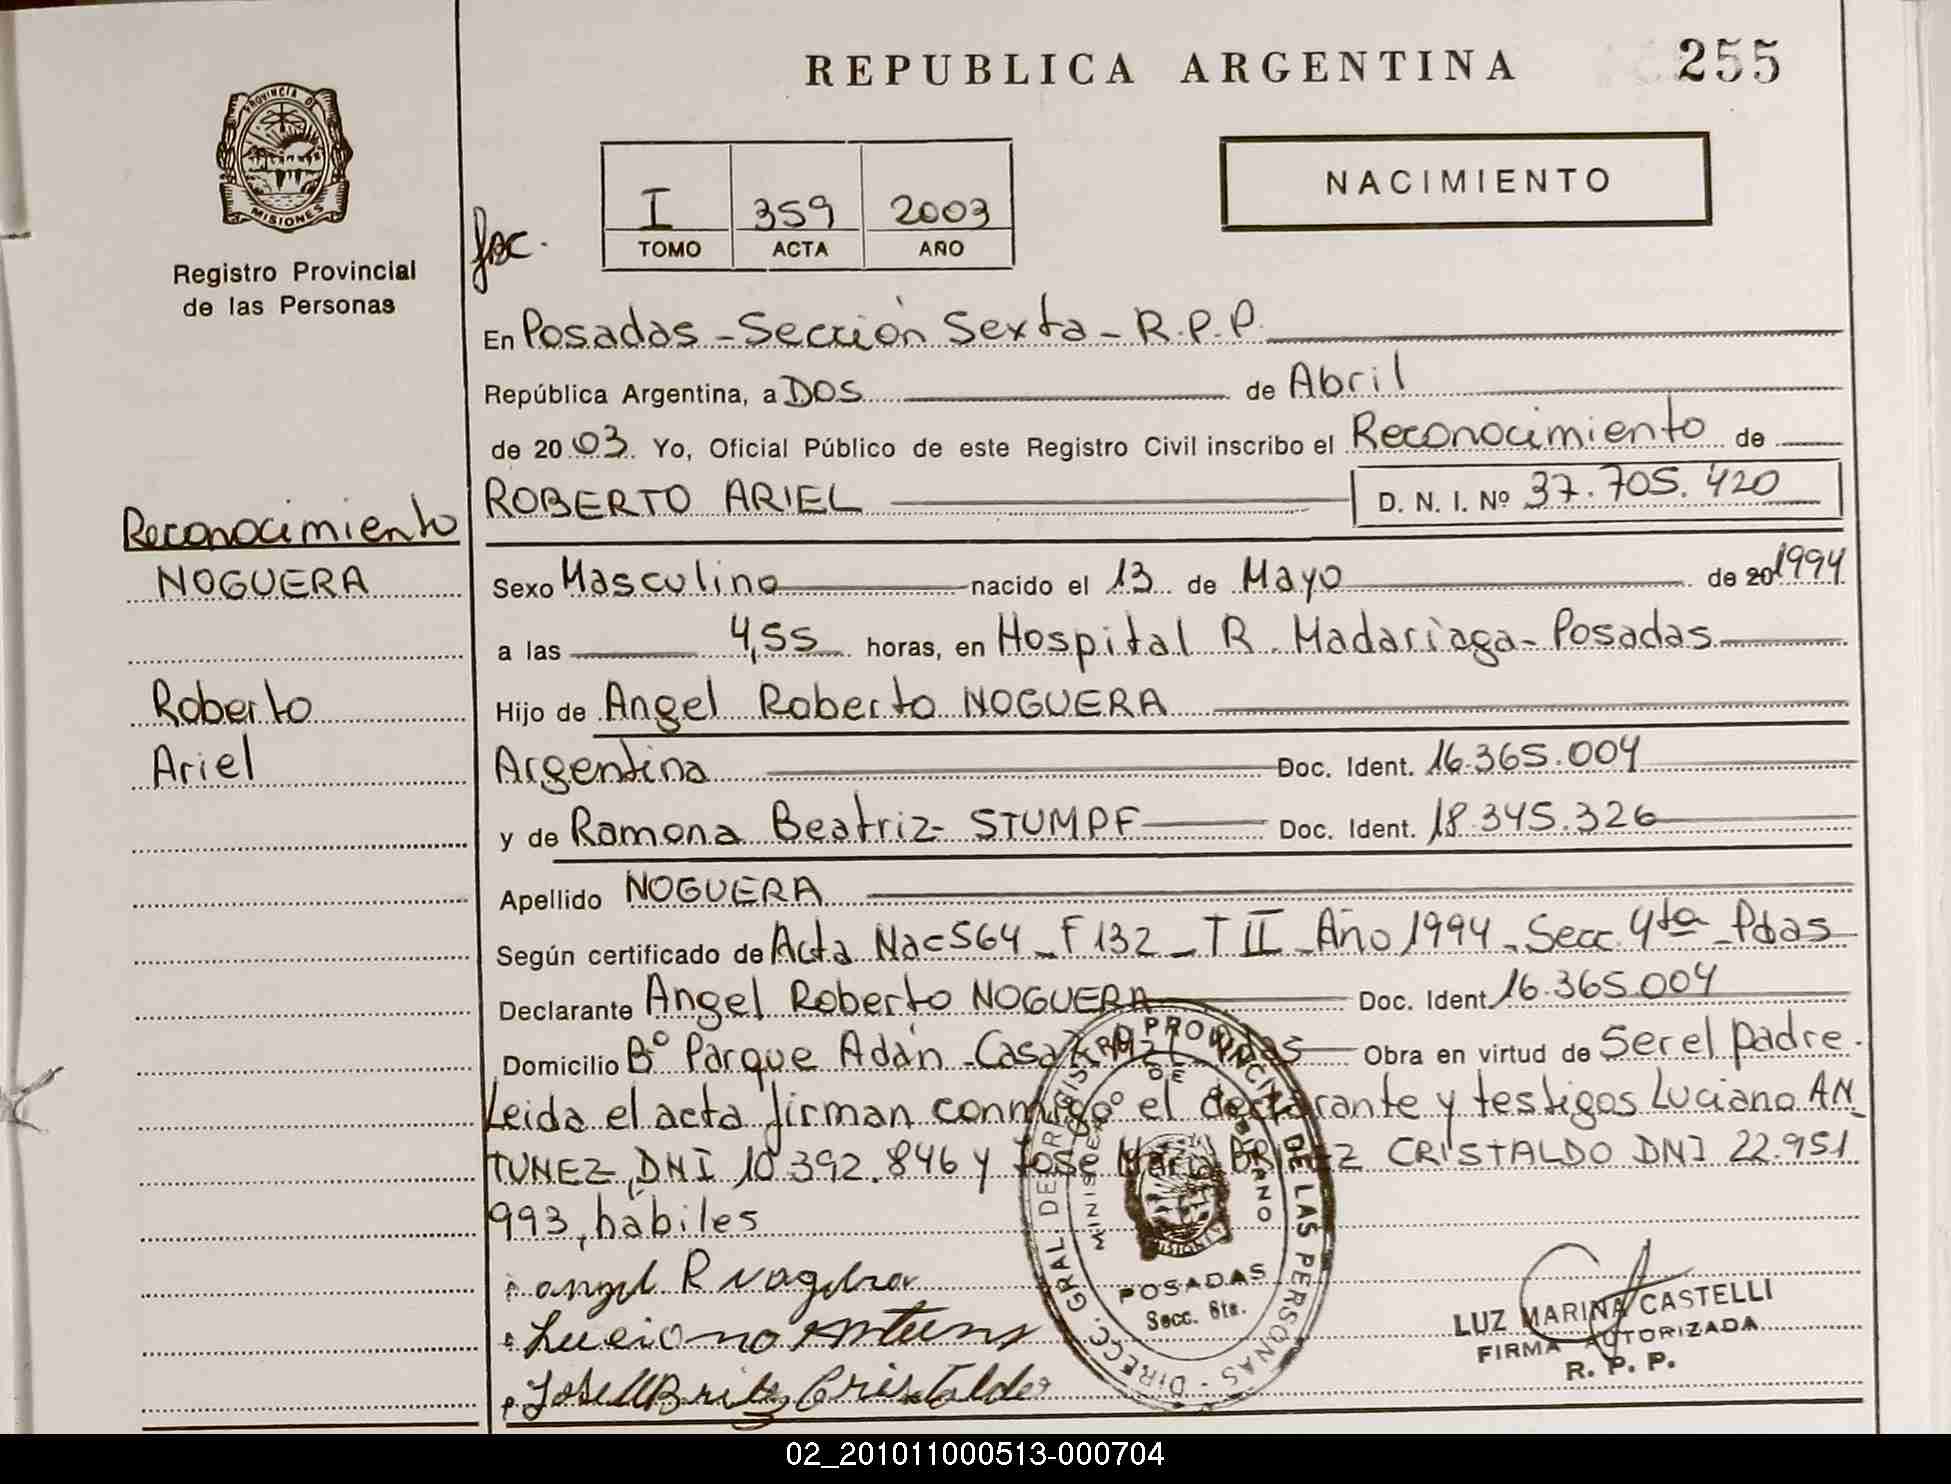 REPUBLICA ARGENTINA
255
PROVINCIA DE
MISIONES
Registro Provincial
de las Personas
I 359 2003
TOMO ACTA AÑO
NACIMIENTO
En Posadas - Sección Sexta - R.P.P.
República Argentina, a DOS de Abril
de 2003. Yo, Oficial Público de este Registro Civil inscribo el Reconocimiento de
ROBERTO ARIEL D. N. I. Nº 37.705.420
Reconocimiento
NOGUERA
Roberto
Ariel
Sexo Masculino nacido el 13 de Mayo de 20 1994
a las 4,55 horas, en Hospital R. Madariaga - Posadas
Hijo de Angel Roberto NOGUERA
Argentina Doc. Ident. 16.365.004
y de Ramona Beatriz STUMPF Doc. Ident. 18.345.326
Apellido NOGUERA
Según certificado de Acta Nac 564 - F 132 - T II - Año 1994 - Secc 4ta - Pdas
Declarante Angel Roberto NOGUERA Doc. Ident. 16.365.004
Domicilio Bº Parque Adán - Casa Obra en virtud de Ser el padre.
Leida el acta firman conmigo el declarante y testigos Luciano AN
TUNEZ, DNI 10.392.846 y José BRITEZ CRISTALDO DNI 22.951.
993, hábiles
Angel R Noguera
Luciano Antunes
Jose M Britez Cristaldo
DIRECC. GRAL DE REGISTRO PROVINCIAL DE LAS PERSONAS
MINISTERIO DE GOBIERNO
POSADAS
Secc. 6ta.
LUZ MARINA CASTELLI
FIRMA AUTORIZADA
R. P. P.
02_201011000513-000704